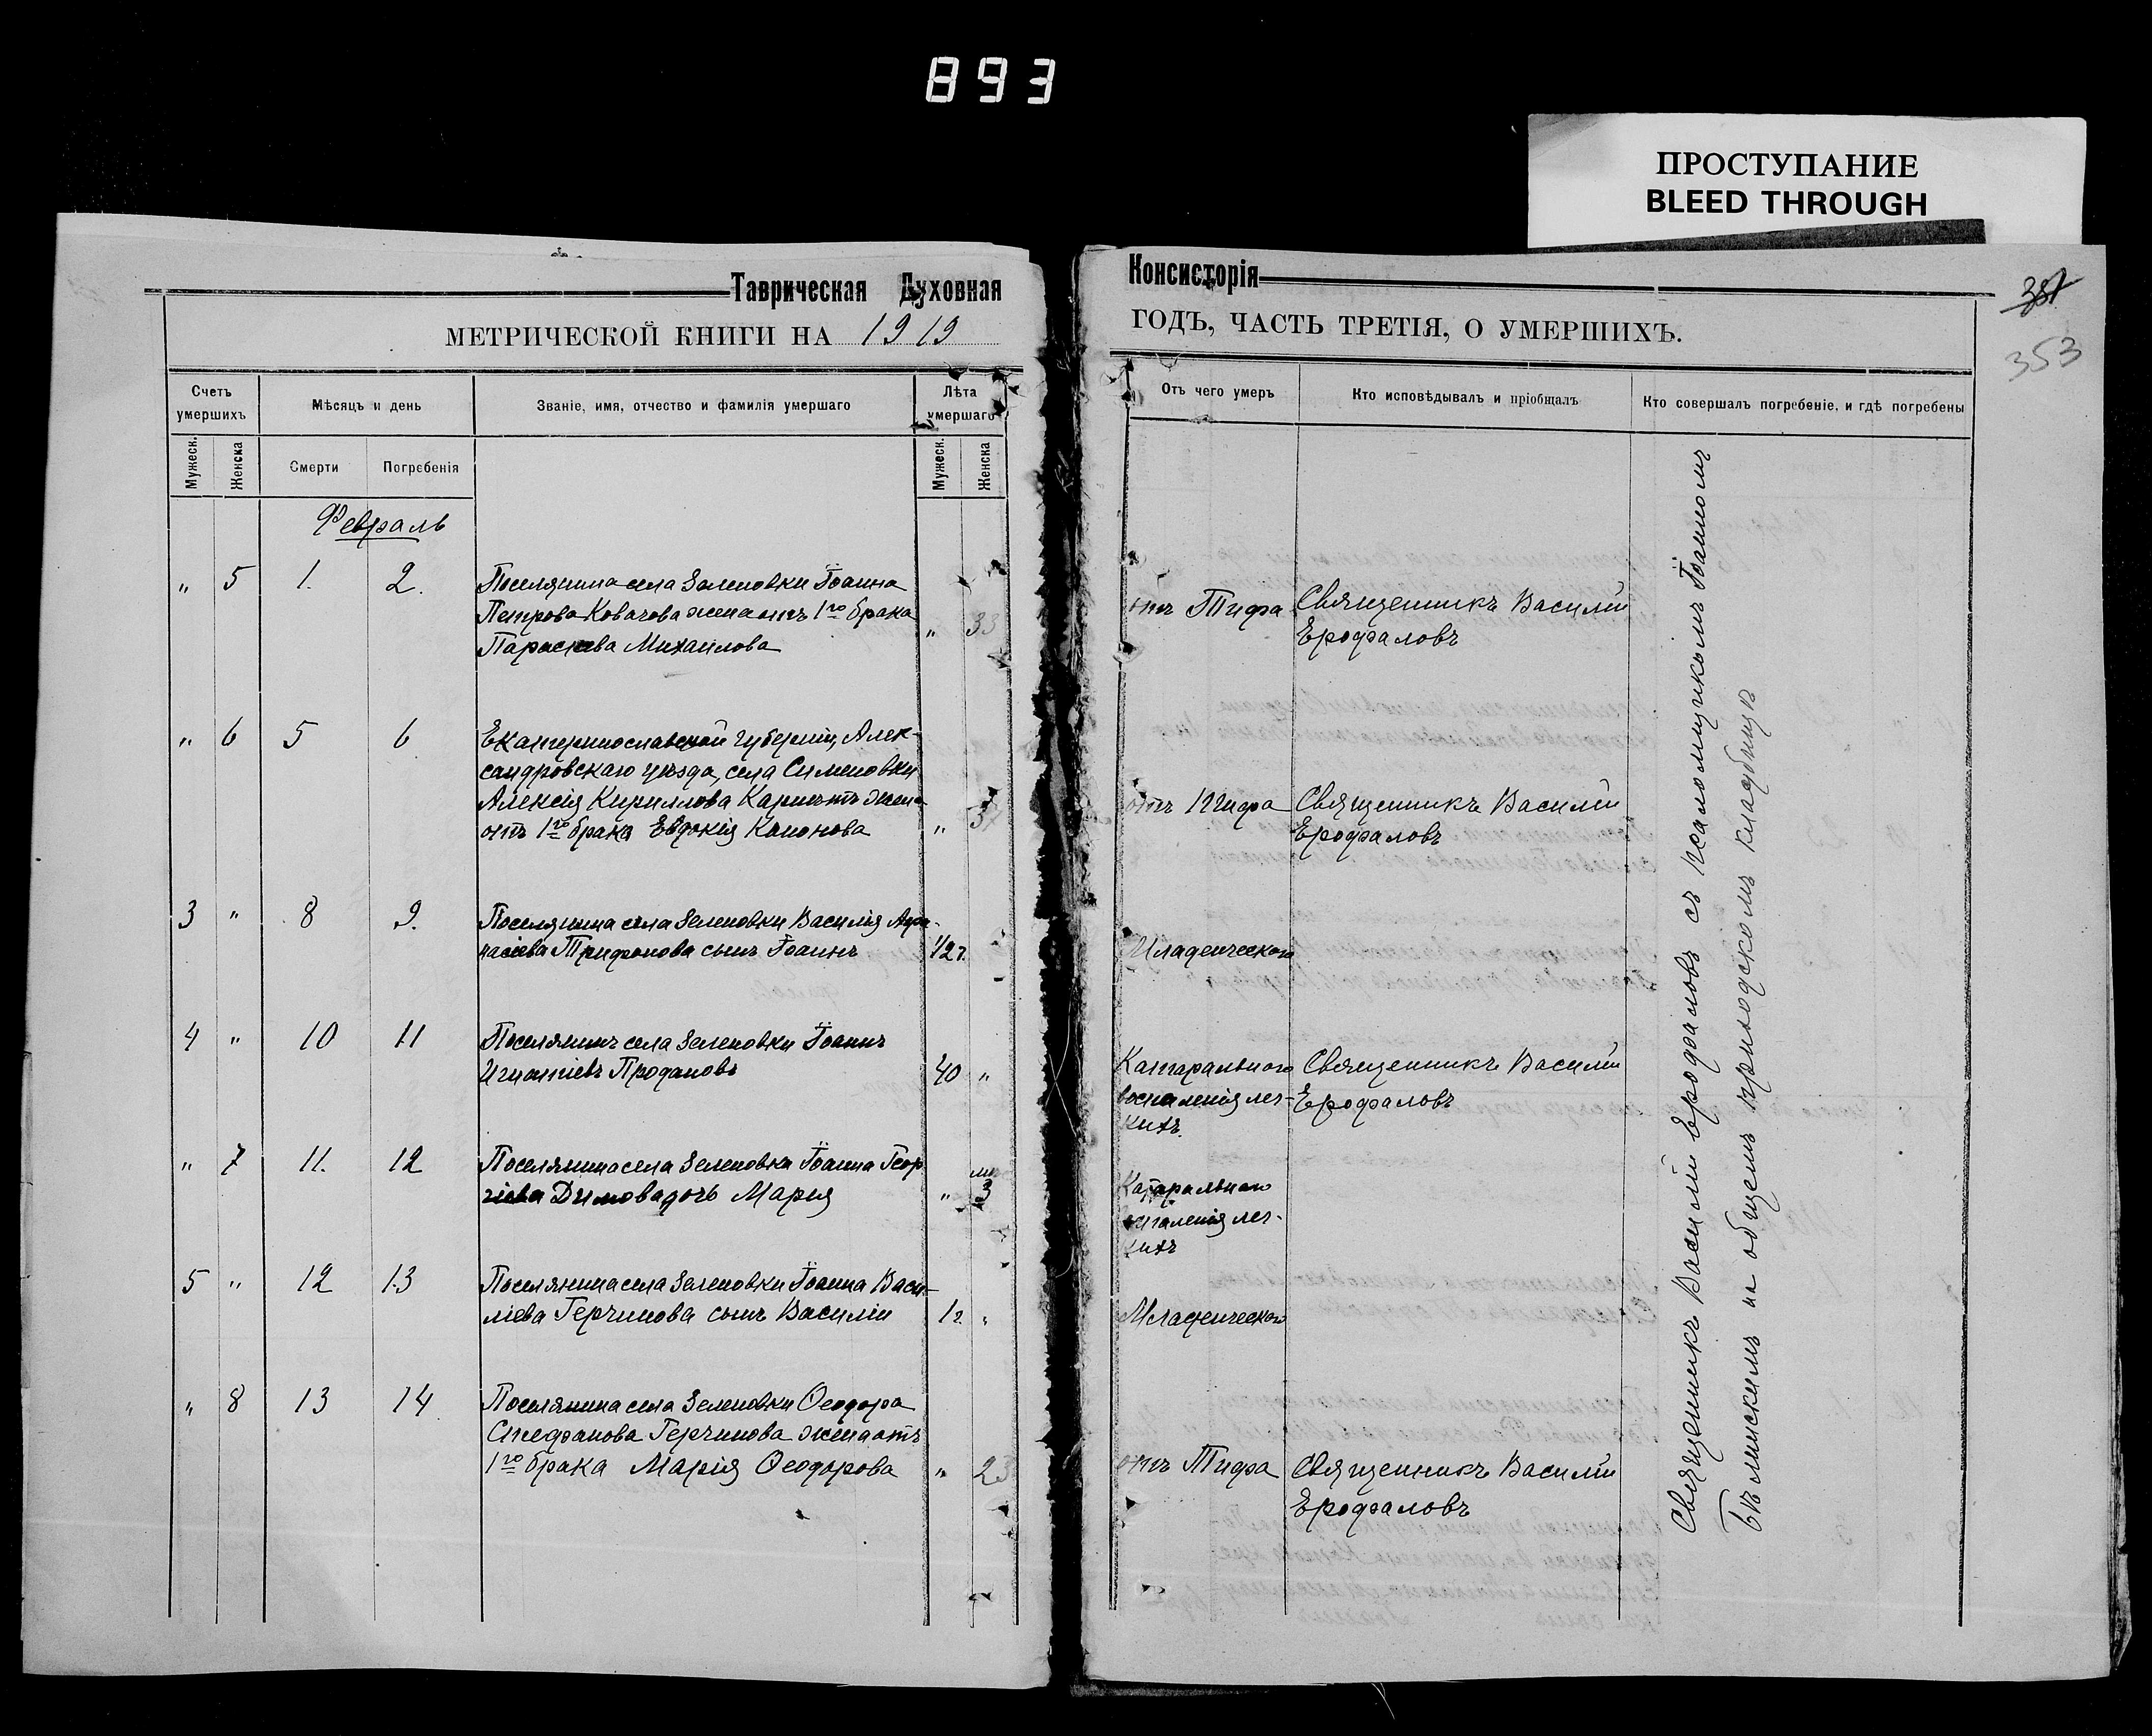 893
ПРОСТУПАНИЕ
BLEED THROUGH
Таврическая Духовная Консисторія
351
353
МЕТРИЧЕСКОЙ КНИГИ НА 1919 ГОДЪ, ЧАСТЬ ТРЕТІЯ, О УМЕРШИХЪ.
Счетъ умершихъ
Мѣсяцъ и день
Званіе, имя, отчество и фамилія умершаго
Лѣта умершаго
Отъ чего умеръ
Кто исповѣдывалъ и пріобщалъ
Кто совершалъ погребеніе, и гдѣ погребены
Мужеск.
Женска
Смерти
Погребенія
Мужеск.
Женска
Февраль
" 5 1. 2.
Поселянина села Зеленовки Іоанна
Петрова Ковачова жена отъ 1го брака
Параскева Михаилова
" 33
отъ Тифа
Священникъ Василій
Ерофаловъ
" 6 5 6
Екатеринославской губерніи, Алек-
сандровскаго уѣзда, села Сименовки
Алексія Кириллова жена
отъ 1го брака Евдокія
"
отъ Тифа
Священникъ Василій
Ерофаловъ
3 " 8 9.
Поселянина села Зеленовки Василія Афа-
насіева Трифонова сынъ Іоаннъ
1/2 г.
Младенческой
4 " 10 11
Поселянинъ села Зеленовки Іоаннъ
Игнатіевъ Продановъ
40 "
Катаральнаго
воспаленія лег-
кихъ.
Священникъ Василій
Ерофаловъ
" 7 11. 12
Поселянина села Зеленовки Іоанна Геор
гіева Димова дочь Марія
" 3
Катаральнаго
воспаленія лег-
кихъ
5 " 12 13
Поселянина села Зеленовки Іоанна Васи-
ліева Герчинова сынъ Василій
1 г. "
Младенческой
" 8 13 14
Поселянина села Зеленовки Ѳеодора
Стефанова Герчинова жена отъ
1го брака Марія Ѳеодорова
" 23
отъ Тифа
Священникъ Василій
Ерофаловъ
Священникъ Василій Ерофаловъ съ псаломщикомъ Іоанномъ
Бѣлинскимъ на общемъ приходскомъ кладбищѣ